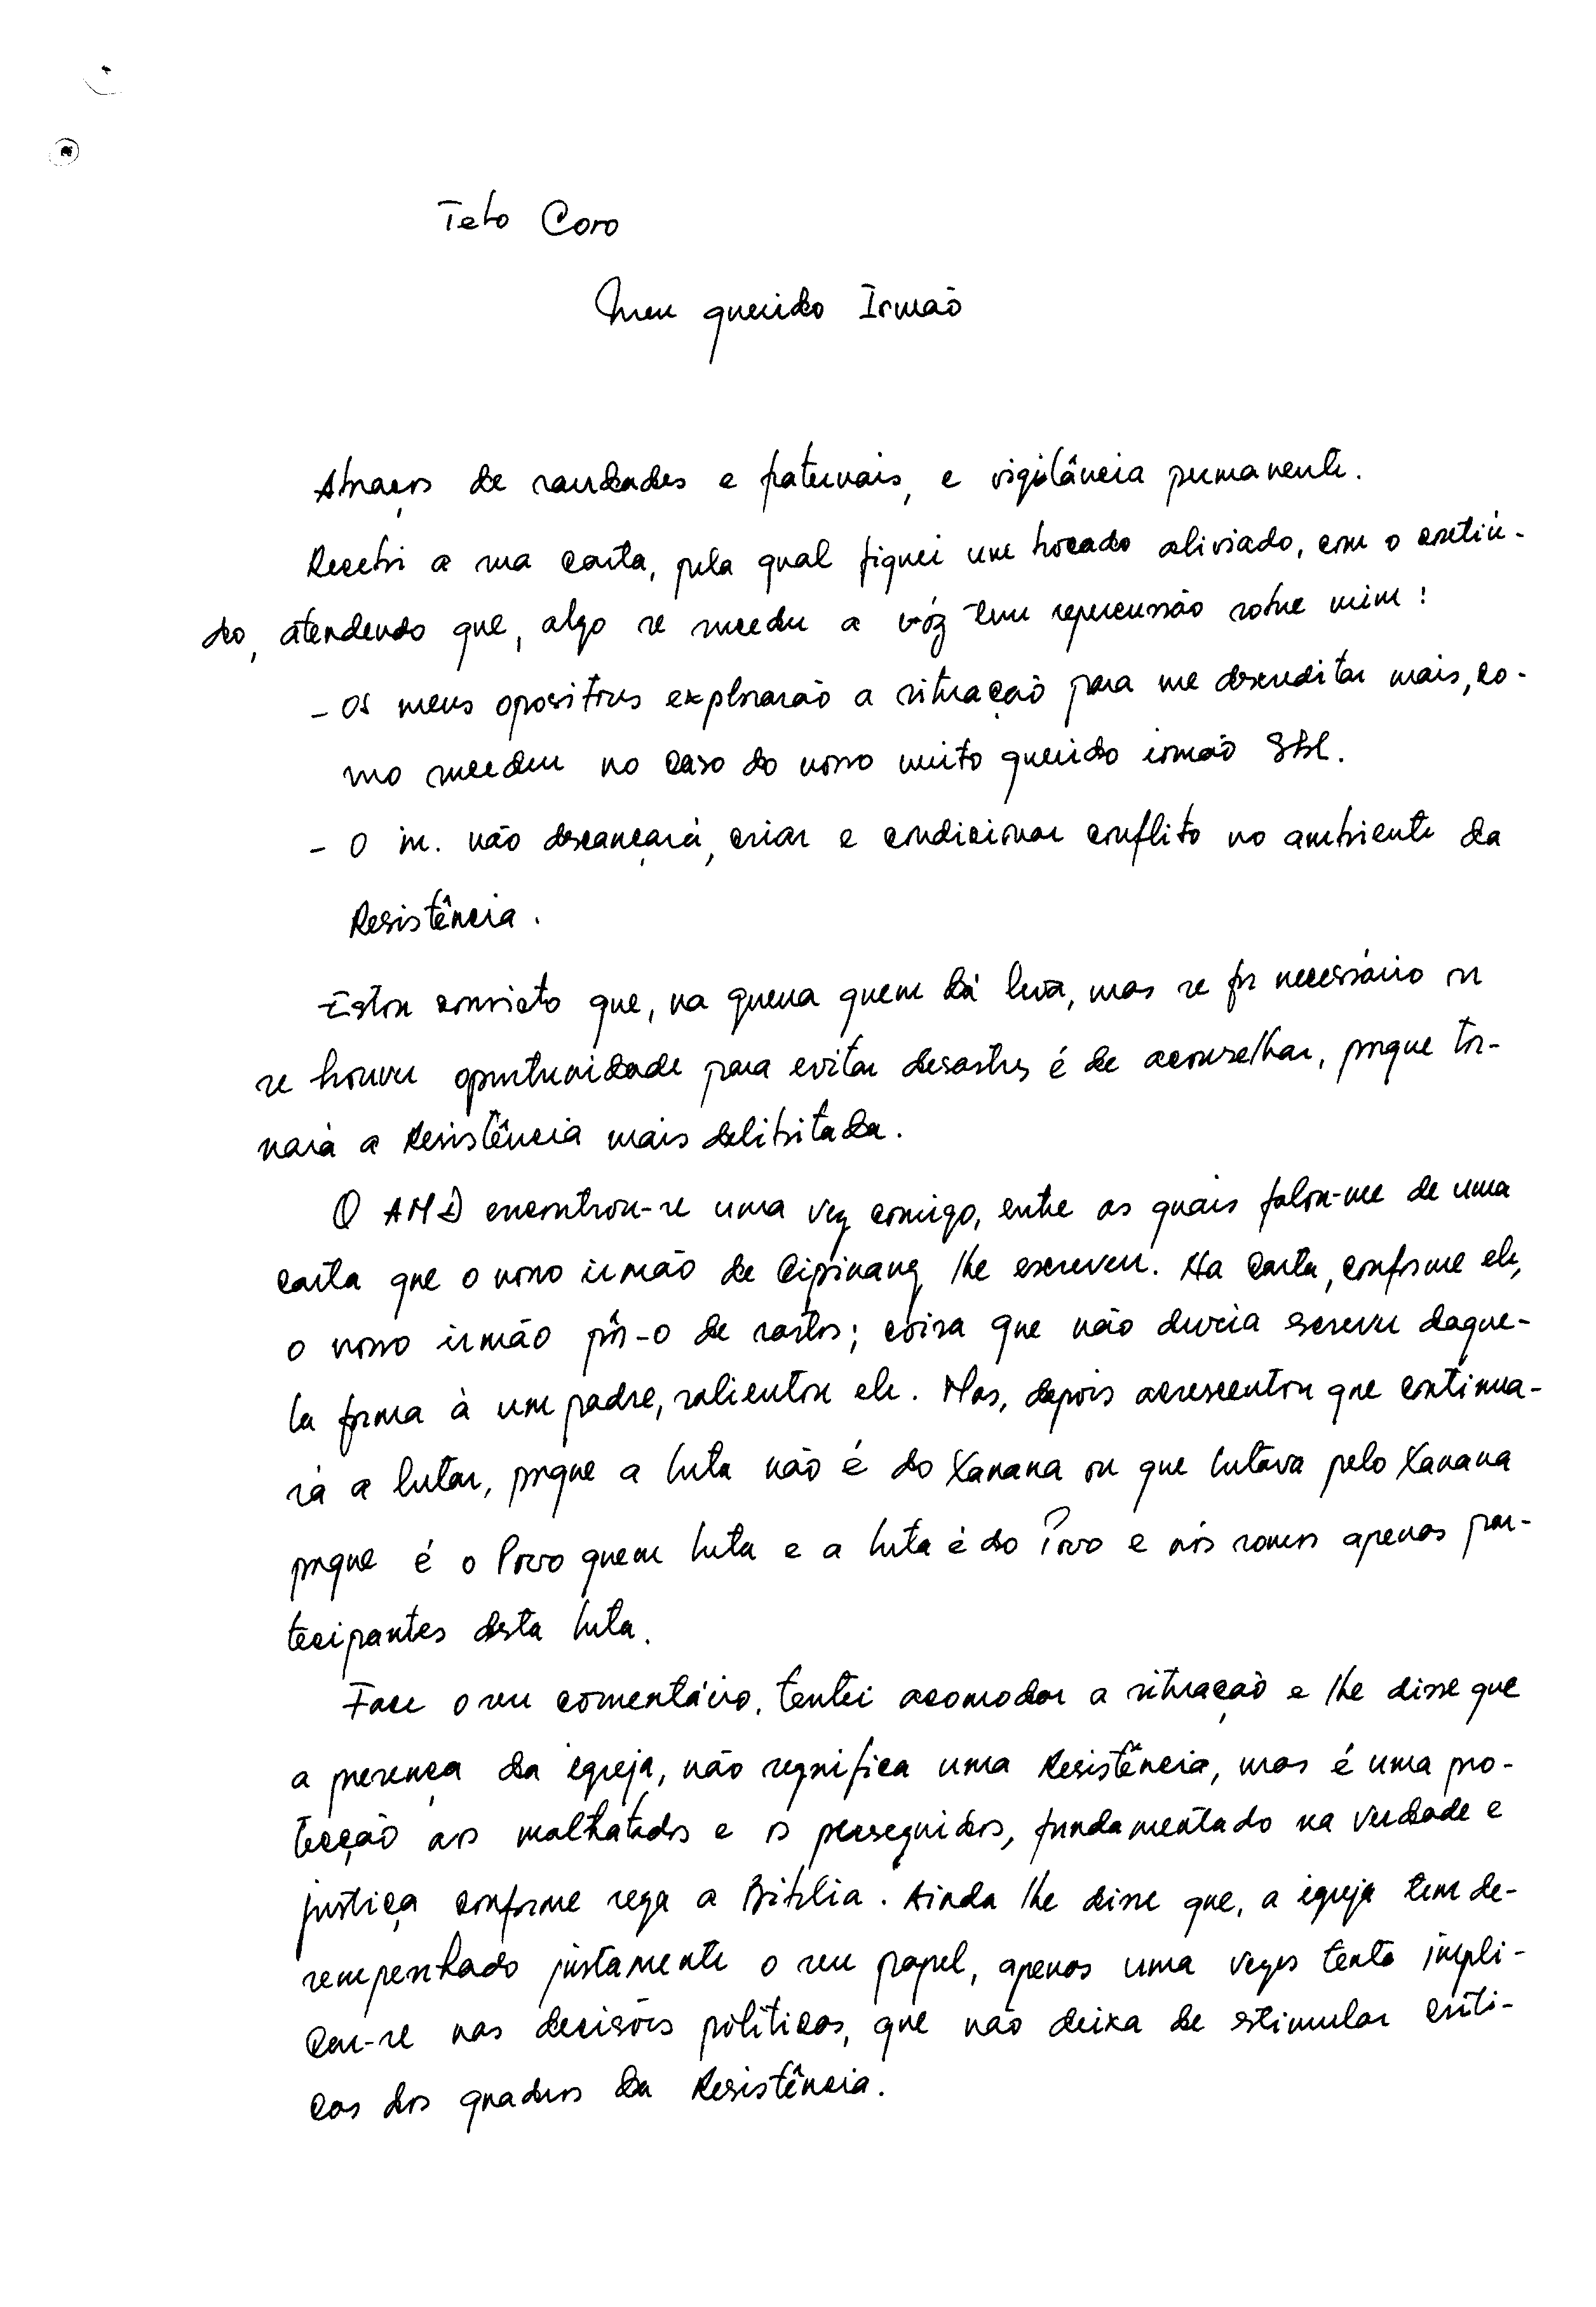 Teto Coro
Meu querido Irmão
Abraços de saudades e fraternais, e vigilância permanente.
Recebi a sua carta, pela qual fiquei um bocado aliviado, com o contéu-
do, atendendo que, algo se suceder a vóz tem repercussão sobre mim:
- Os meus opositores explorarão a situação para me descreditar mais, co-
mo sucedeu no caso do nosso muito querido irmão
- O in. não descançará, criar e condicionar conflito no ambiente da
Resistência.
Estou convicto que, na guerra quem dá leva, mas se for necessário ou
se houver oportunidade para evitar desastres é de aconselhar, porque tor-
nará a Resistência mais debilitada.
O AMD encontrou-se uma vez comigo, entre as quais falou-me de uma
carta que o nosso irmão de Cipinang, lhe escreveu. Na carta, conforme ele,
o nosso irmão pôs-o de rastos; coisa que não devia escrever daque-
la forma à um padre, salientou ele. Mas, depois acrescentou que continua-
rá a lutar, porque a luta não é do Xanana ou que lutava pelo Xanana
porque é o Povo quem luta e a luta é do Povo e nós somos apenas par-
tecipantes desta luta.
Face o seu comentário, tentei acomodar a situação e lhe disse que
a presença da igreja, não segnifica uma Resistência, mas é uma pro-
tecção aos maltratados e os perseguidos, fundamentado na verdade e
justiça conforme rega a Bibilia. Ainda lhe disse que, a igreja tem de-
sempenhado justamente o seu papel, apenas uma vezes tenta impli-
car-se nas decisões políticas, que não deixa de estimular críti-
cas dos quadros da Resistência.